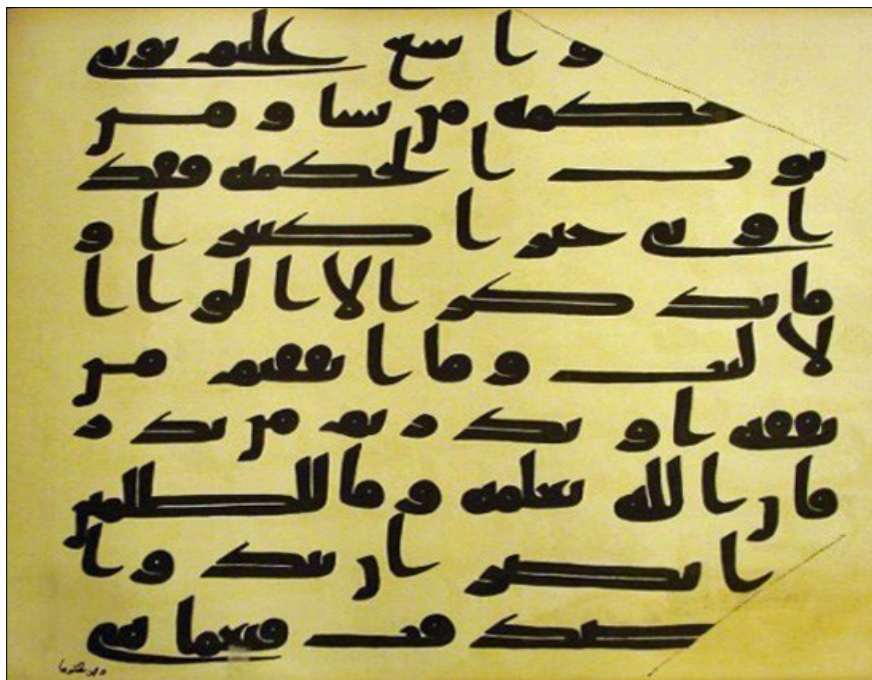 واسع عليم يوتى
حكمه من يسا ومن
يوت الحكمه فقد
اوتى خيرا كثيرا و
ما يذكر الا اولوا ا
لالبب وما انفقتم من
نفقه او نذرتم من نذر
فان الله يعلمه وما للظلمين
انصر ان تبدوا
صدقت فنعما هى